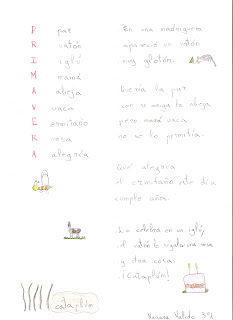 P paz
R ratón
I iglú
M mamá
A abeja
V vaca
E ermitaño
R rosa
A alegría
En una madriguera
apareció un ratón
muy glotón.
Quería la paz
con su amiga la abeja
pero mamá vaca
no se lo permitía.
Qué alegría
el ermitaño este día
cumple años.
Lo celebran en un iglú,
el ratón le regala una rosa
y otra cosa
¡Cataplúm!
cataplúm
Vanesa Valido 3º